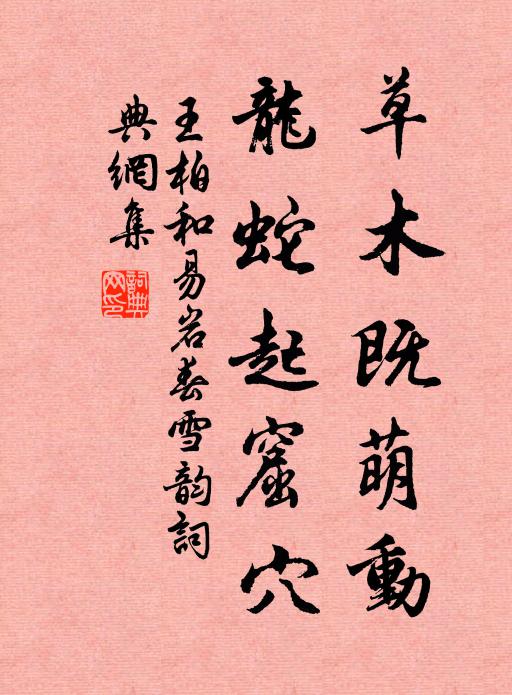 草木既萌動
龍蛇起窟穴
王柏和易岩春雪韵詞
典網集
詞典
网印